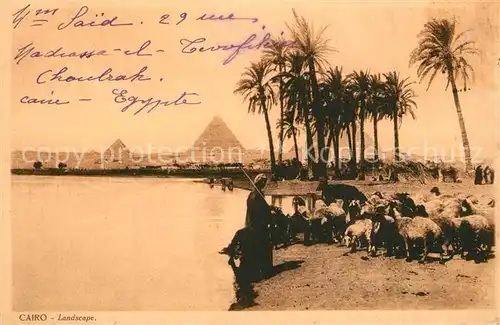 Mme Saïd. 29 rue
Madrassa-el-Tewfikia
Choubrah.
Caire - Egypte
CAIRO - Landscape.